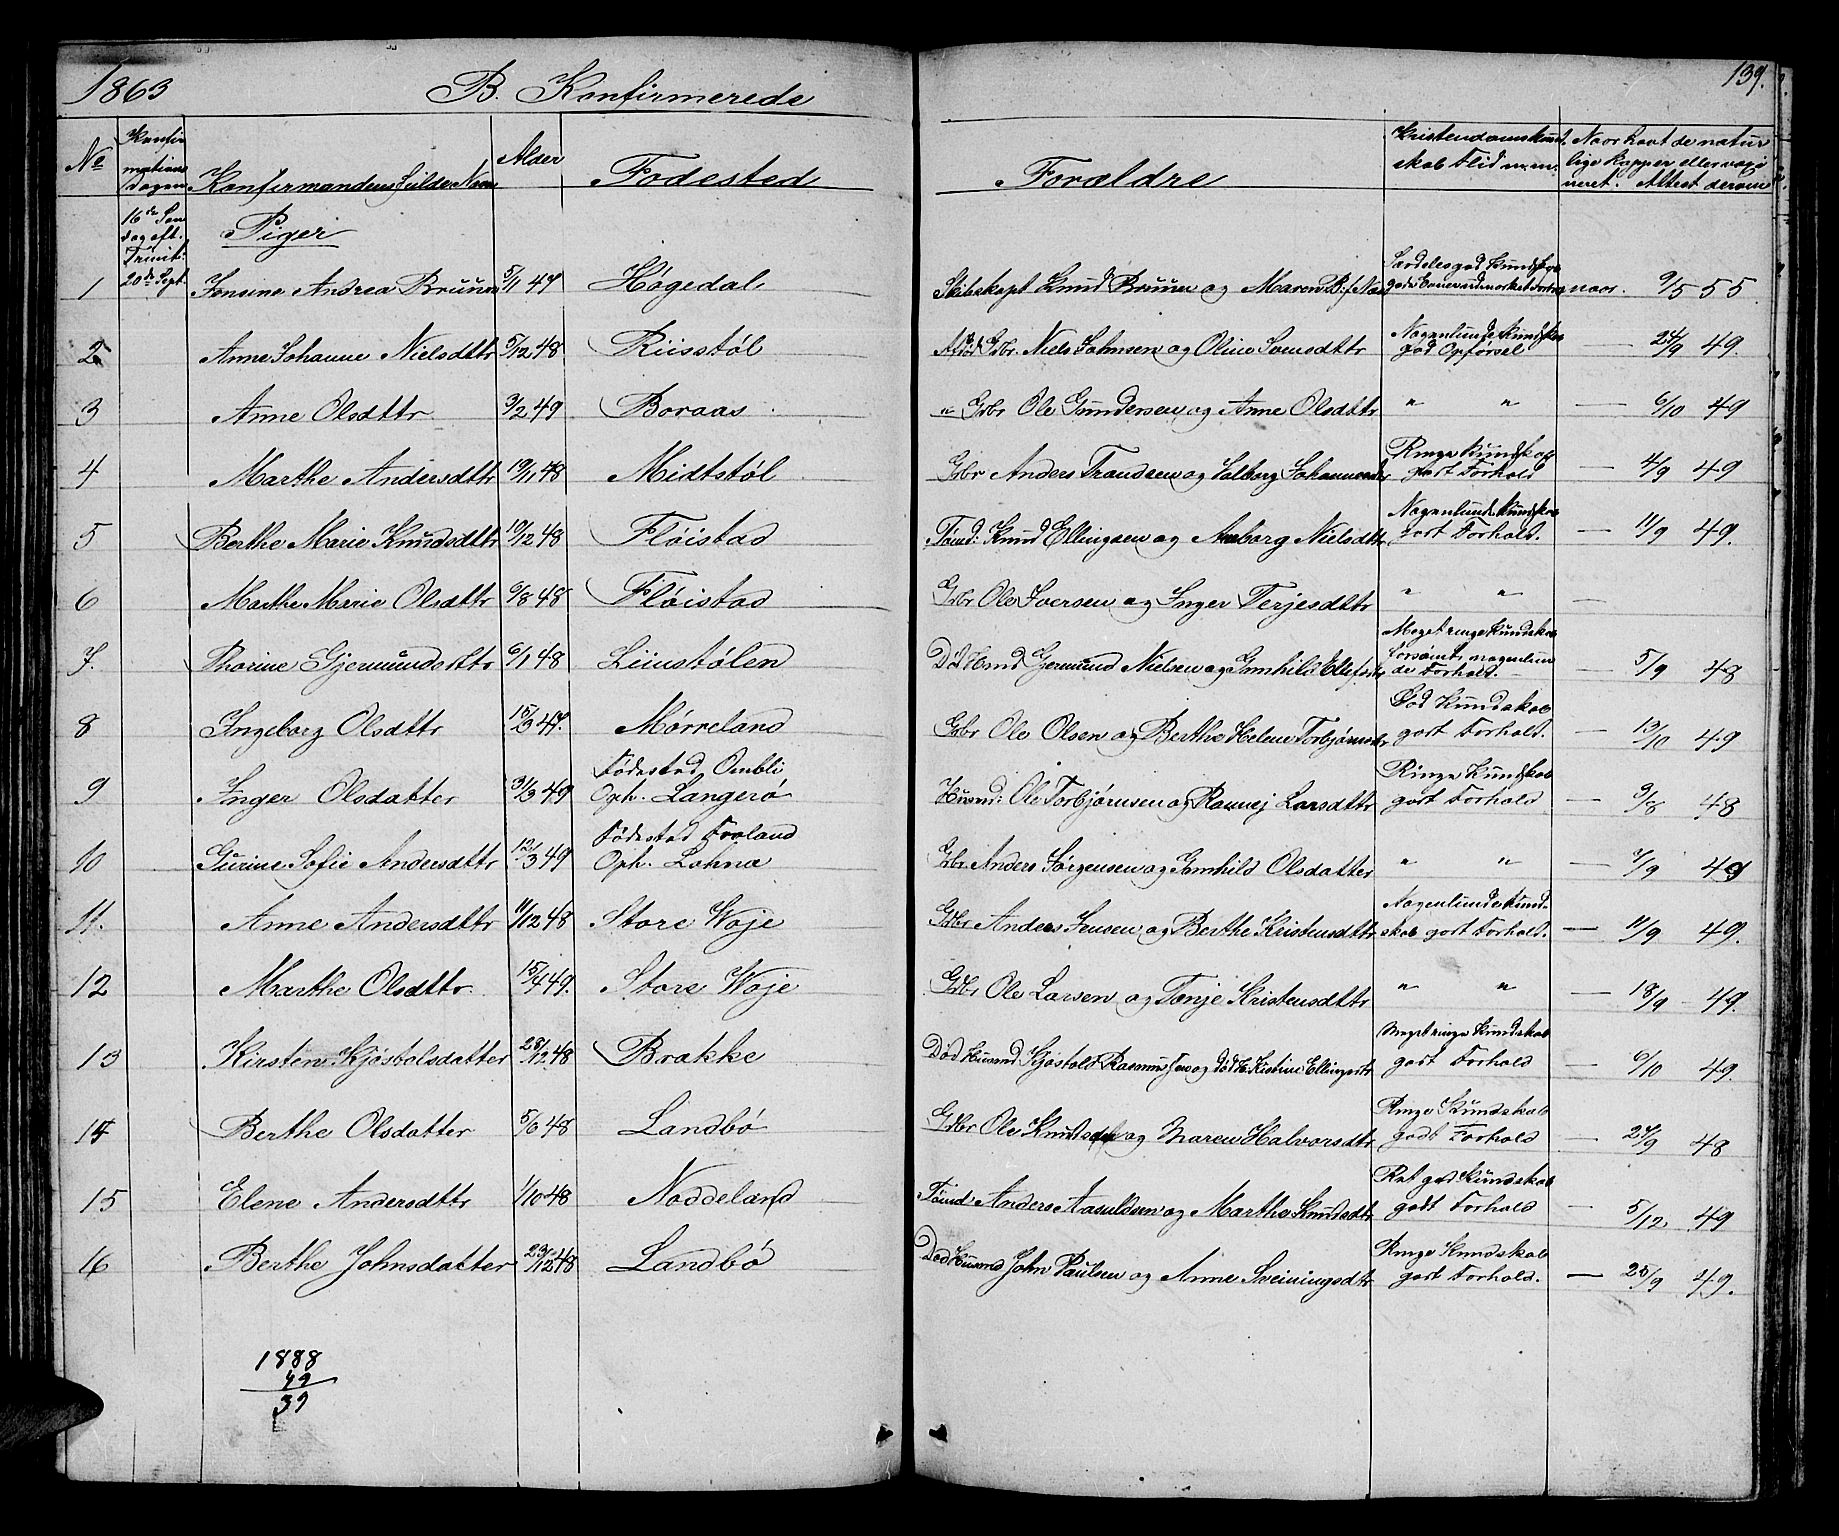 1863 B. Konfirmerede
139.
No Konfir mations Dagen Konfirmandens fulde Navn Alder Fødested Forældre Kristendomskund- skab Flid m.m. Naar havt de natur- lige Kopper eller vaxi- neret. Attest derom
16de Søn- dag eft. Trinit: 20de Sept.
Piger
1 Jensine Andrea Bruun 5/11 47 Høgedal Skibskapt Knud Bruun og Maren naar. 9/5 55
2 Anne Johanne Nielsdttr 5/12 48 Riisstøl Afdød Gbr. Niels Salmsen og Oline Svensdttr Nogenlunde Kundska god Opførsel — 24/9 49.
3 Anne Olsdttr 3/2 49 Boraas " Gbr Ole Gundersen og Anne Olsdttr " " — 6/10 49
4 Marthe Andersdttr 19/11 48 Midtstøl Gbr Anders Trondsen og Valborg Johannesdtr Ringe Kundskab godt Forhold — 4/9 49
5 Berthe Marie Knudsdttr 10/12 48 Fløistad Tømd: Knud Ellingsen og Anborg Nielsdttr Nogenlund. Kundska godt Forhold. — 11/9 49.
6 Marthe Marie Olsdttr 6/8 48 Fløistad Gbr Ole Iversen og Inger Terjesdttr " " —
7. Thorine Gjermundsdttr 6/1 48 Liinstølen Død Mand Germund Nielsen og Gunhild Ellefsdtr Meget ringe Kundskab forsømt, nogenlun des Forhold. — 5/9 48
8 Ingeborg Olsdttr 15/3 47. Mørreland Gbr Ole Olsen og Berthe Helene Torbjørnsdtr God Kundskab godt Forhold. — 13/10 49
9 Inger Olsdatter 31/3 49 Fødested Ombli Oph. Langerø Husmd: Ole Torbjørnsen og Rannej Larsdttr Ringe Kundskab godt Forhold — 9/8 48
10 Gurine Sofie Andersdttr 12/3 49 Fødested Froland Oph. Lohne Gbr Anders Jørgensen og Gunhild Olsdatter " " — 7/9 49
11. Anne Andersdttr 11/12 48 Store Woje Gdbr Anders Jensen og Berthe Kristensdttr Nogenlunde Kund- skab godt Forhold. — 11/9 49.
12 Marthe Olsdttr. 15/4 49. Store Woje Gdbr Ole Larsen og Tonje Kristensdttr " " — 18/9 49.
13 Kirsten Kjøstolsdatter 28/12 48 Brække Død Husmd. Kjøstold Rasmussen og død H. Kistine Ellingsdtr Meget ringe Kundskab godt Forhold — 6/10 49.
14 Berthe Olsdatter 5/6 48 Landbø Gdbr Ole Knudsen og Maren Halvorsdttr Ringe Kundskab godt Forhold — 24/9 48
15 Elene Andersdttr 1/10 48 Noddeland Tømd: Anders Aasuldsen og Marthe Knudsdtr Ret god Kundskab godt Forhold — 5/12 49
16 Berthe Johnsdatter 23/12 48 Landbø Død Husmd John Paulsen og Anne Sveiningsdtr Ringe Kundskab godt Forhold. — 25/9 49.
1888
49
39